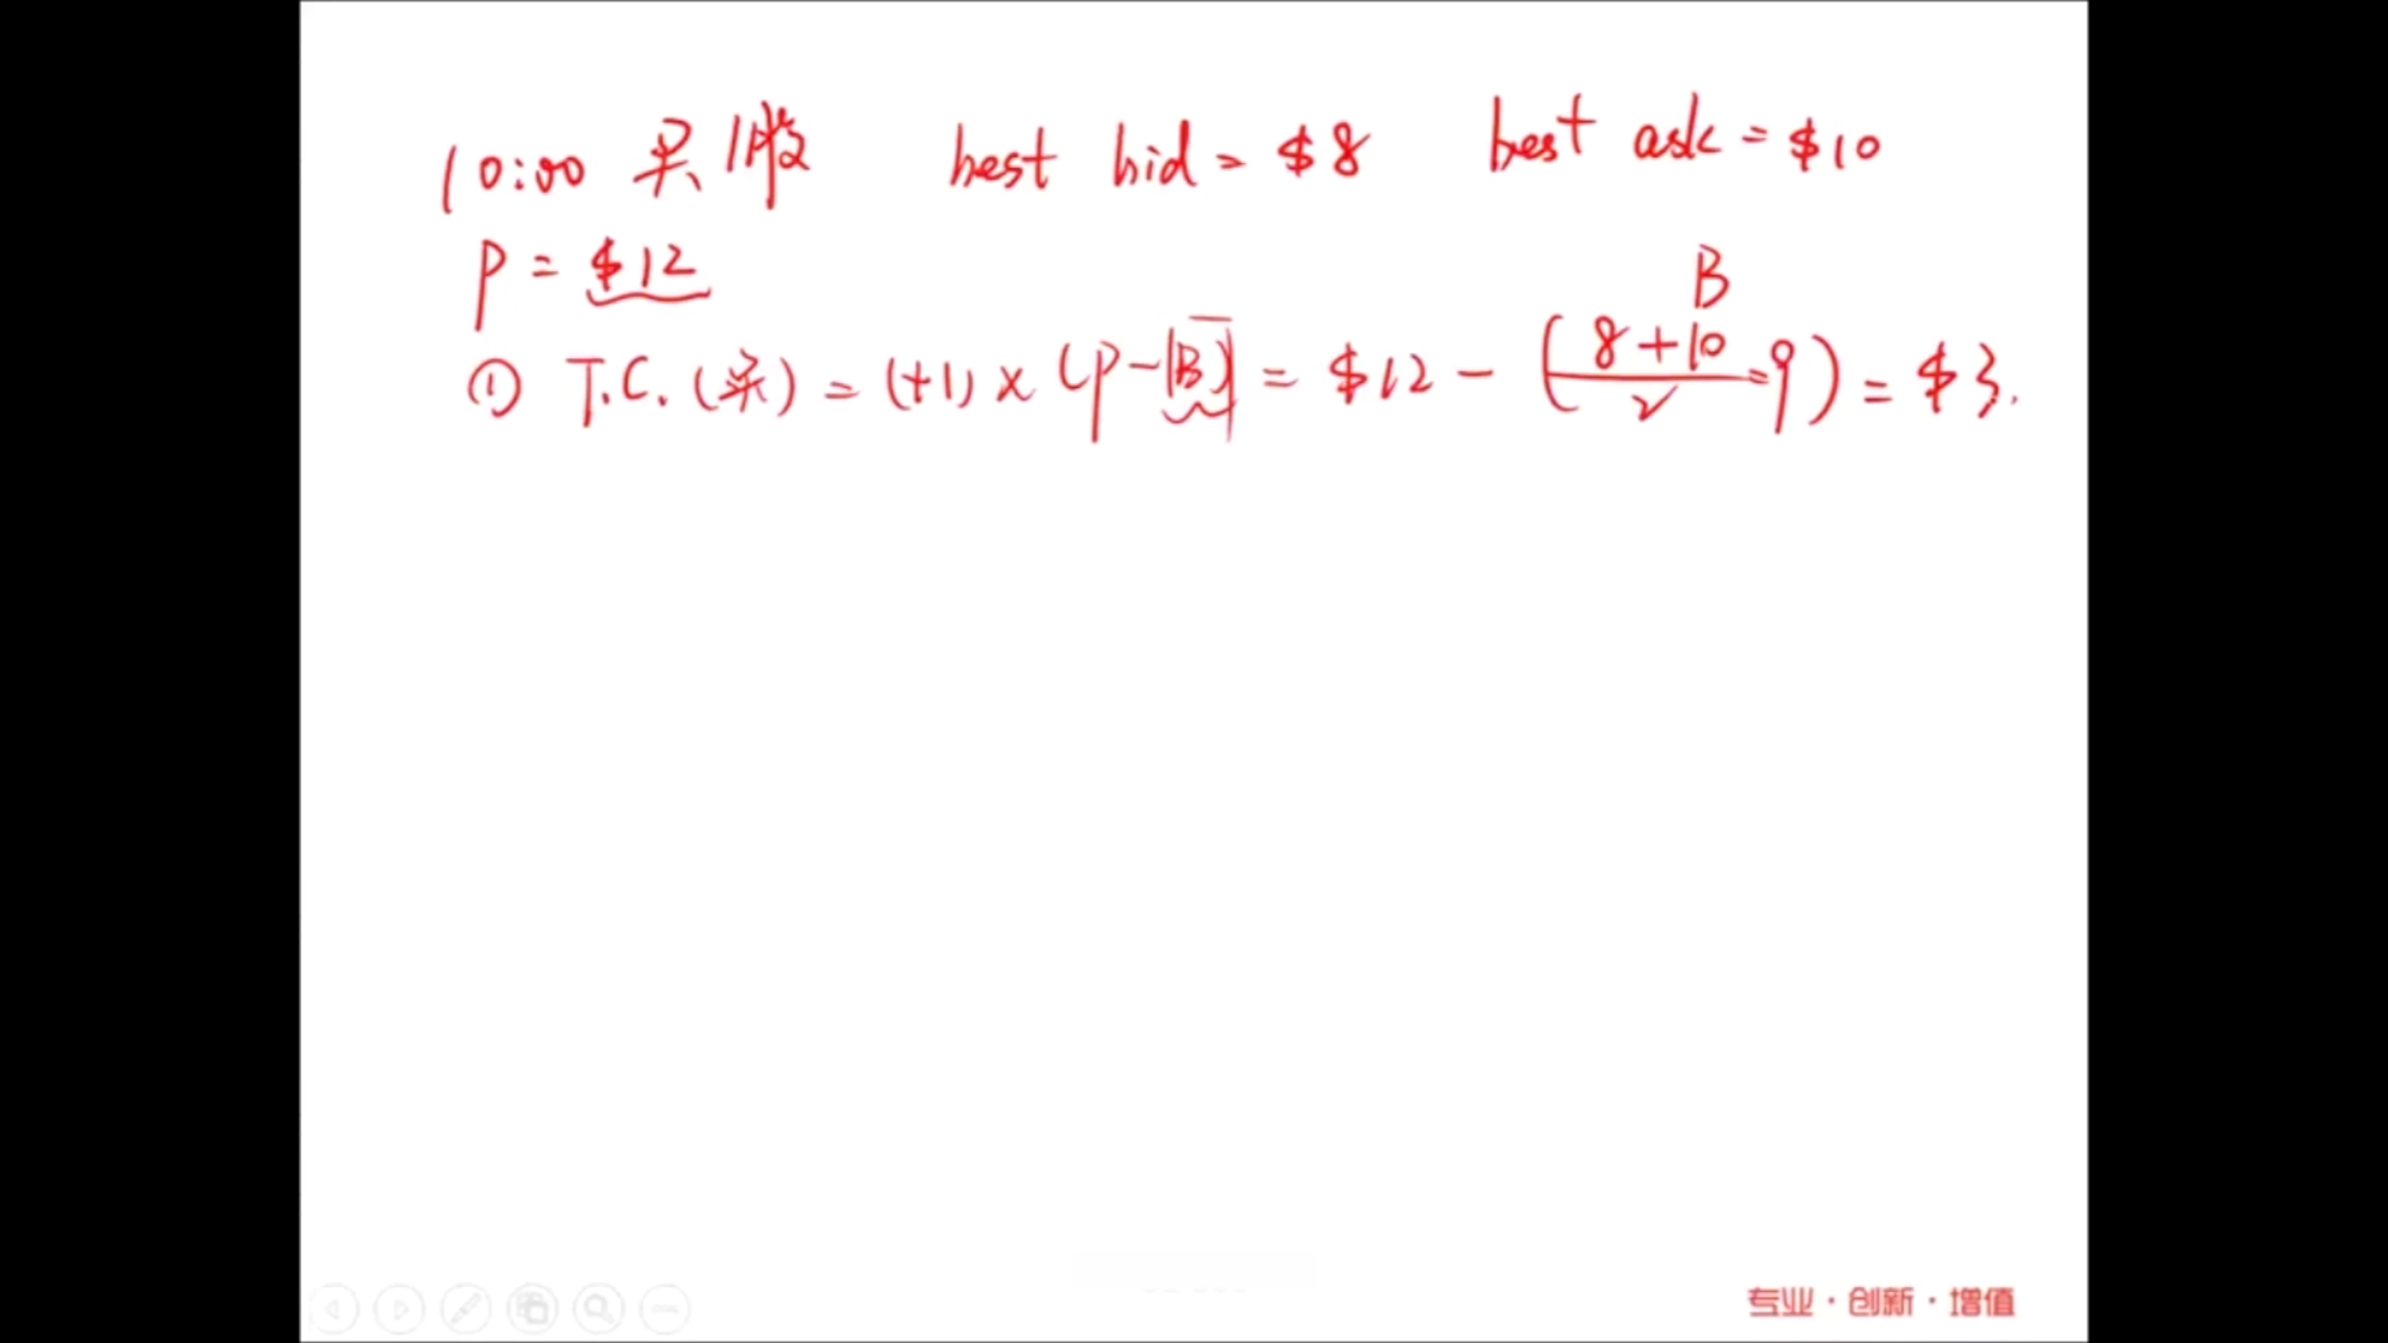 10:00 买1股 best bid = $8 best ask = $10
P = $12
B
① T.C.(买) = (+1) × (P-B) = $12 - (8+10/2=9) = $3.
专业·创新·增值